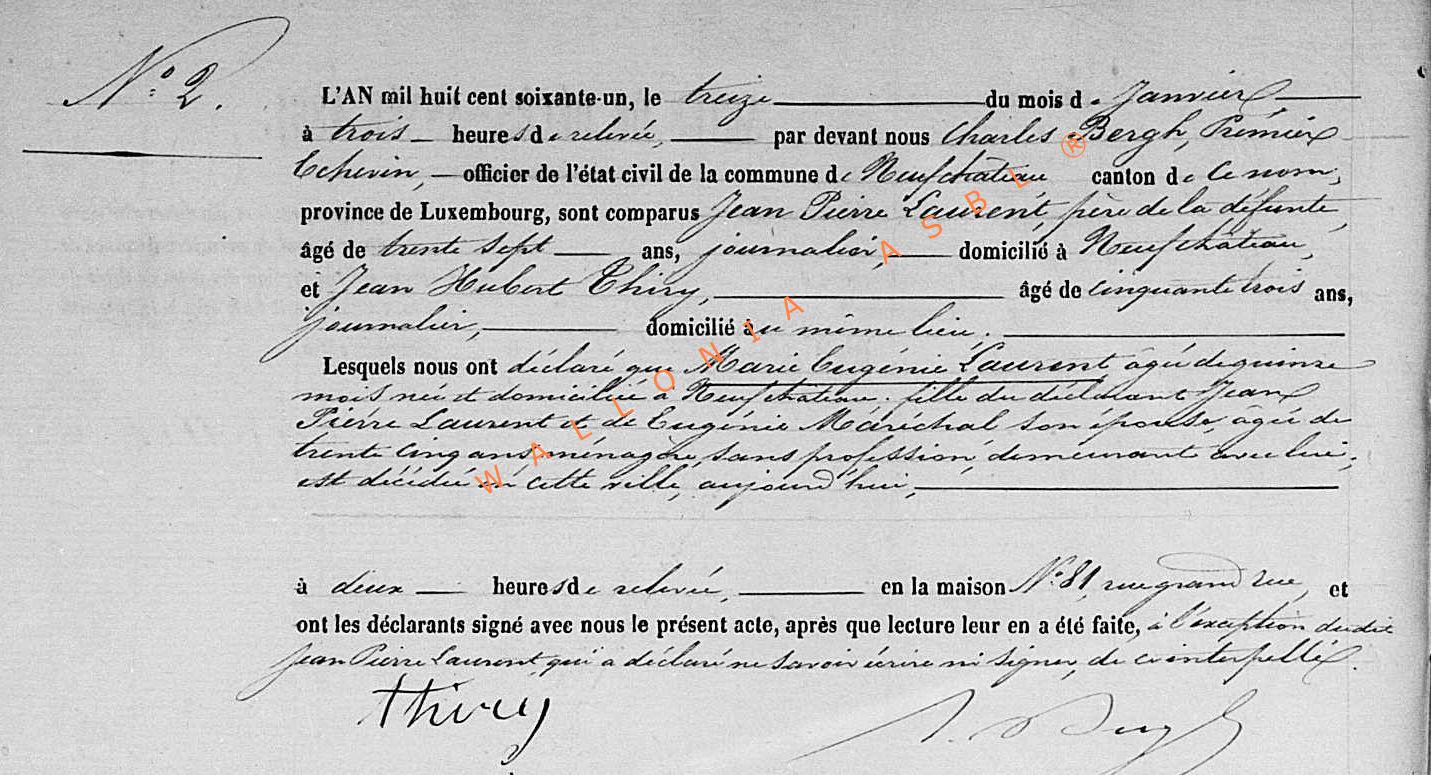 N° 2.
L'AN mil huit cent soixante-un, le treize du mois de Janvier
à trois heures de relevée, par devant nous Charles Bergh, Premier
Echevin, officier de l'état civil de la commune de Neufchâteau canton de ce nom,
province de Luxembourg, sont comparus Jean Pierre Laurent, père de la défunte,
âgé de trente sept ans, journalier, domicilié à Neufchâteau,
et Jean Hubert Thiry, âgé de cinquante trois ans,
journalier, domicilié au même lieu.
Lesquels nous ont déclaré que Marie Eugénie Laurent âgée de quinze
mois née et domiciliée à Neufchâteau, fille du déclarant Jean
Pierre Laurent et de Eugénie Maréchal son épouse, âgée de
trente cinq ans, ménagère, sans profession, demeurante avec lui,
est décédée en cette ville, aujourd'hui,
à deux heures de relevée, en la maison N° 81, rue grand rue, et
ont les déclarants signé avec nous le présent acte, après que lecture leur en a été faite, à l'exception dudit
Jean Pierre Laurent, qui a déclaré ne savoir écrire ni signer, de ce interpellé.
thiry
Bergh
WALLONIA ASBL ®